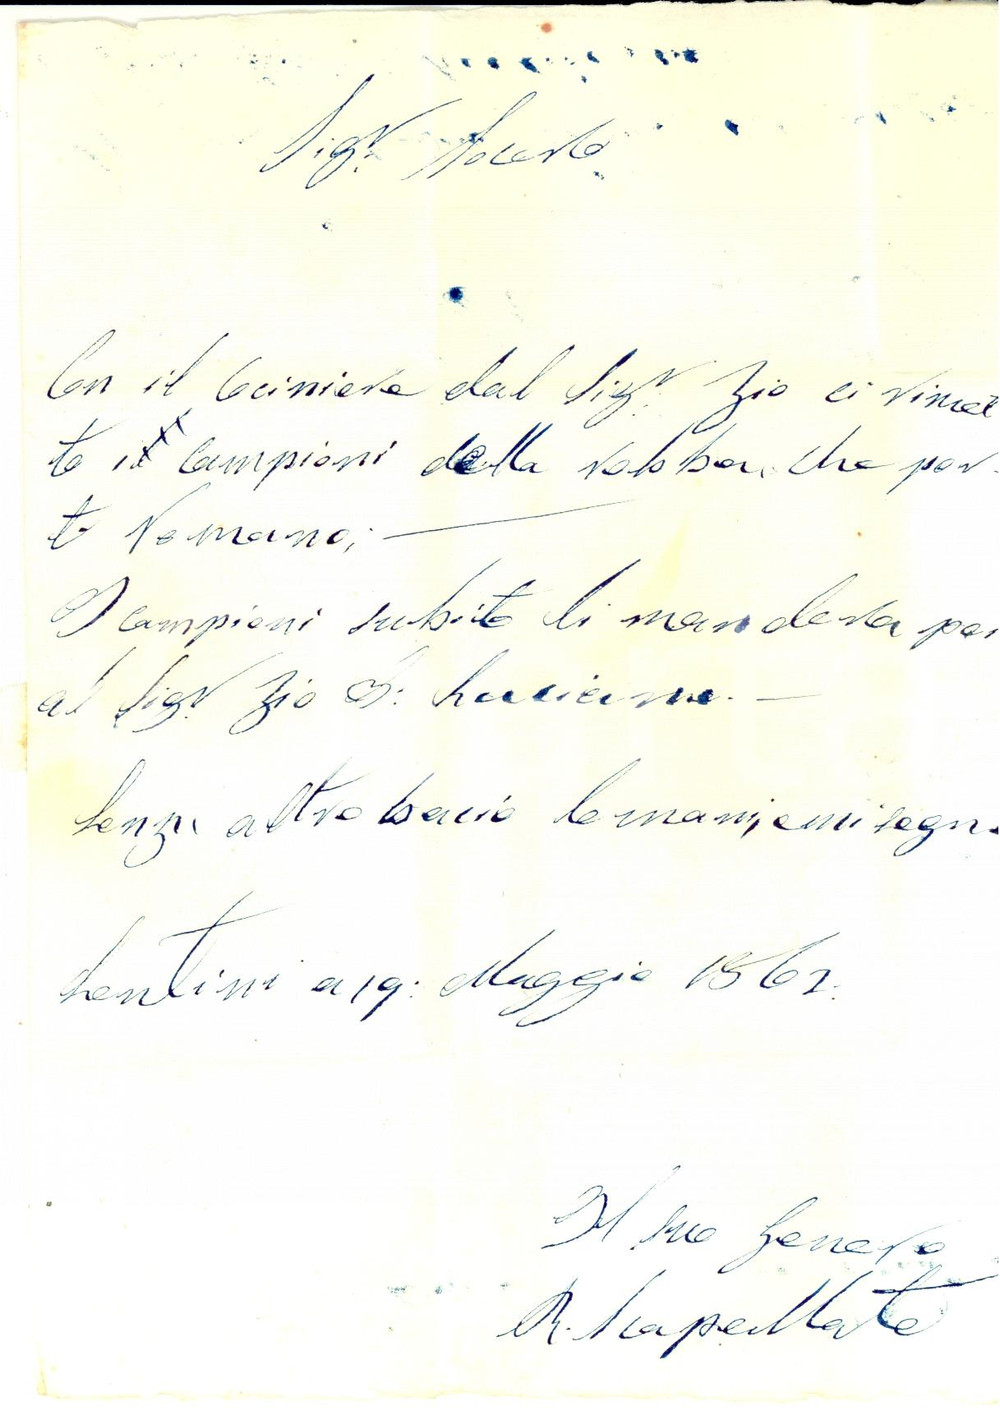 Sigr. Socero
Con il Cociniere dal Sigr. Zio ci rimet
to i Campioni della robba, che por-
tò Romano;
I campioni subito li manderà per
al Sigr. Zio D: Luciano. —
Senz' altro bacio le mani, e mi segno
Lentini a 19: Maggio 1862.
Il suo Genero
R. Scapellato